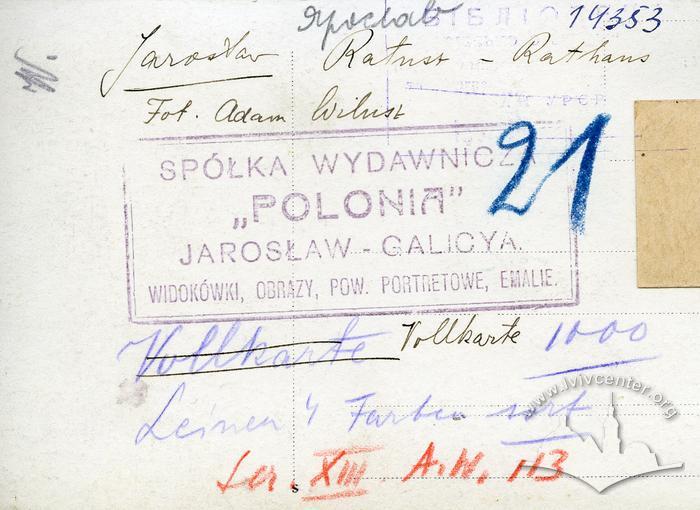 Ярослав
БІБЛІО 19353
Jarosław Ratusz - Rathaus
УРСР
Fot. Adam Wilusz
SPÓŁKA WYDAWNICZA
„POLONIA”
JAROSŁAW - GALICYA.
WIDOKÓWKI, OBRAZY, POW. PORTRETOWE, EMALIE.
21
Vollkarte Vollkarte 1000
Leinen 4 Farben sort
Ser. XIII. A.W. 113
s
www.lvivcenter.org